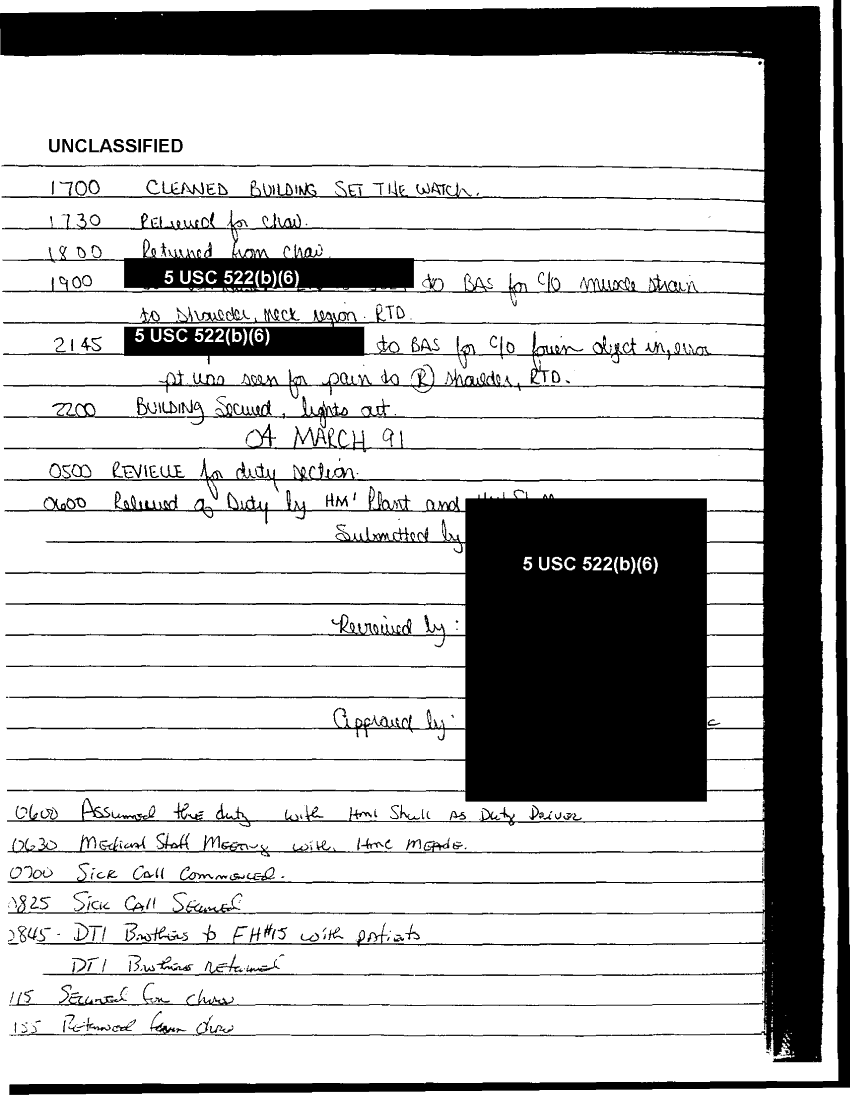 UNCLASSIFIED
1700 CLEANED BUILDING SET THE WATCH.
1730 Relieved for chow.
1800 Returned from chow.
5 USC 522(b)(6)
1900 to BAS for C/O muscle strain
to shoulder, neck region. RTD.
5 USC 522(b)(6)
2145 to BAS for C/O forien object in, error
pt was seen for pain to (R) shoulder, RTD.
2200 BUILDING Secured, lights out.
04 MARCH 91
0500 REVIELLE for duty section.
0600 Relieved of Duty by HM1 Plant and
Submitted by
5 USC 522(b)(6)
Reviewed by:
Approved by:
0600 Assumed the duty with HM1 Shull AS Duty Driver
0630 Medical Staff Meeting with HMC MEADE.
0700 Sick Call Commenced.
0825 Sick Call Secured
0845 - DT1 Brothers to FH#15 with patients
DT1 Brothers returned
115 Secured for chow
155 Returned from chow